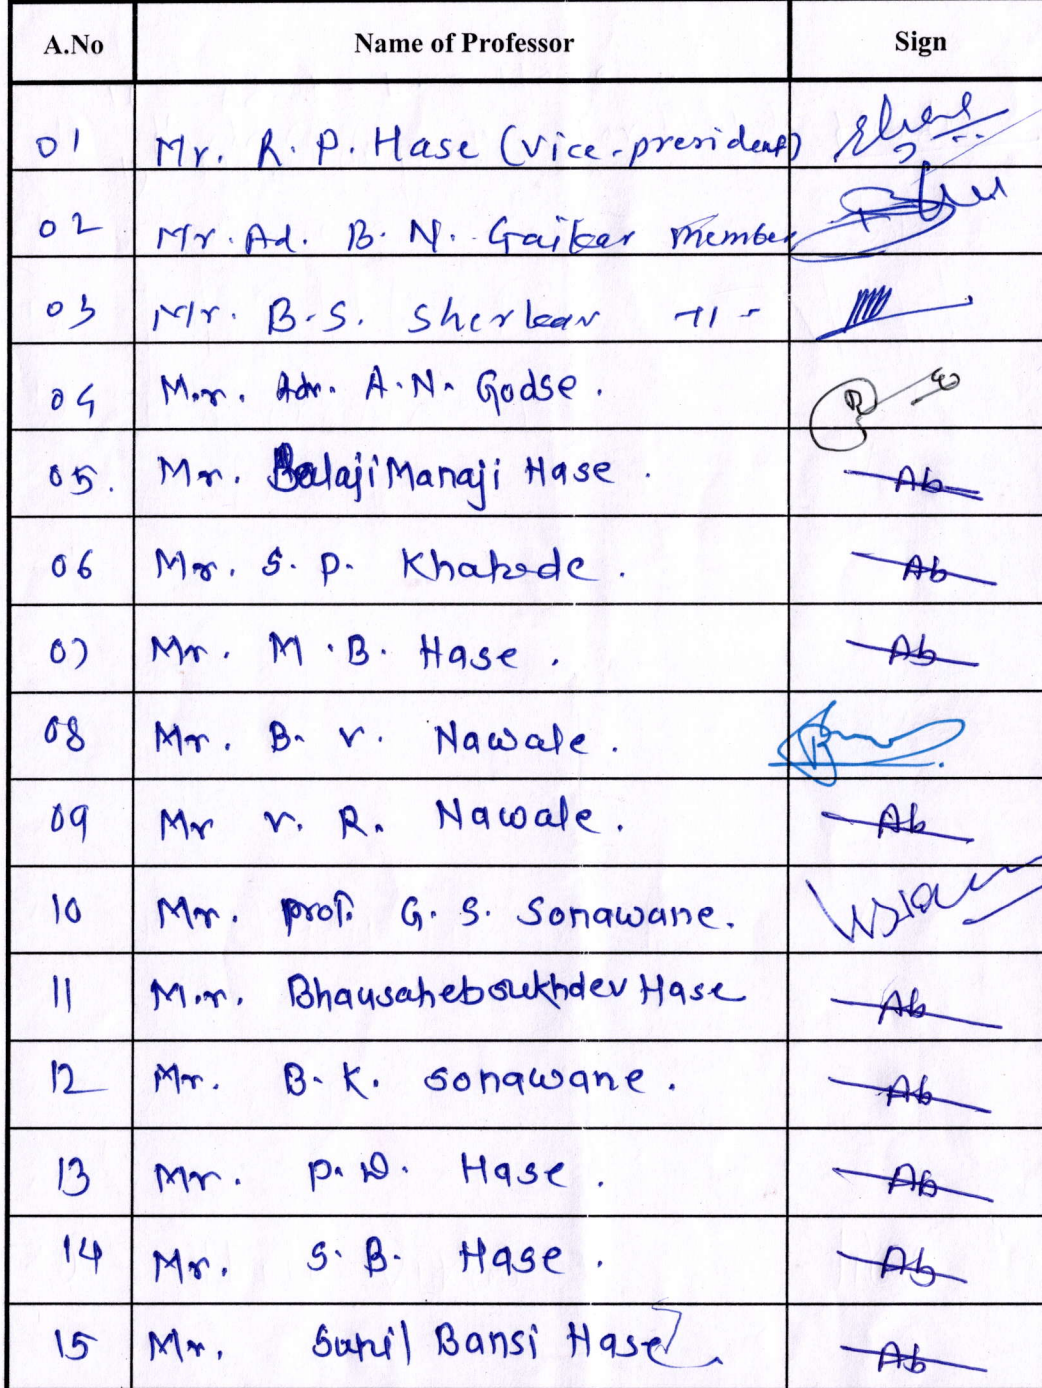 A.No Name of Professor Sign
01 Mr. R. P. Hase (Vice-president)
02 Mr. Ad. B. N. Gaikar member
03 Mr. B.S. Sherkar -11-
04 M.r. Adr. A.N. Godse.
05. Mr. Balaji Manaji Hase. Ab
06 Mr. S. P. Khatode. Ab
07 Mr. M.B. Hase. Ab
08 Mr. B. V. Nawale.
09 Mr V. R. Nawale. Ab
10 Mr. prof. G. S. Sonawane.
11 M.r. Bhausaheb sukhdev Hase Ab
12 Mr. B. K. Sonawane. Ab
13 Mr. P. D. Hase. Ab
14 Mr. S. B. Hase. Ab
15 Mr. Sunil Bansi Hase Ab